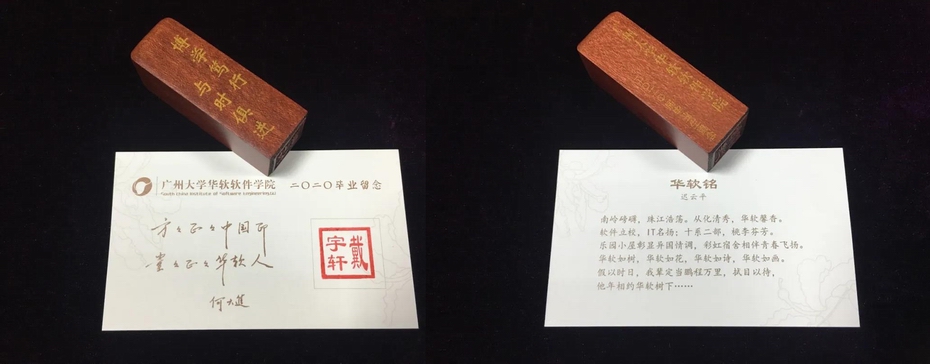 博学笃行
与时俱进
广州大学华软软件学院 二〇二〇毕业留念
South China Institute of Software Engineering.GU
方方正正中国印
堂堂正正华软人
何大进
戴
宇轩
广州大学华软软件学院
华软铭
迟云平
南岭嵯峨，珠江浩荡。从化清秀，华软馨香。
软件立校，IT名扬；十系二部，桃李芬芳。
乐园小屋彰显异国情调，彩虹宿舍相伴青春飞扬。
华软如树，华软如花，华软如诗，华软如画。
假以时日，我辈定当鹏程万里，拭目以待，
他年相约华软树下……